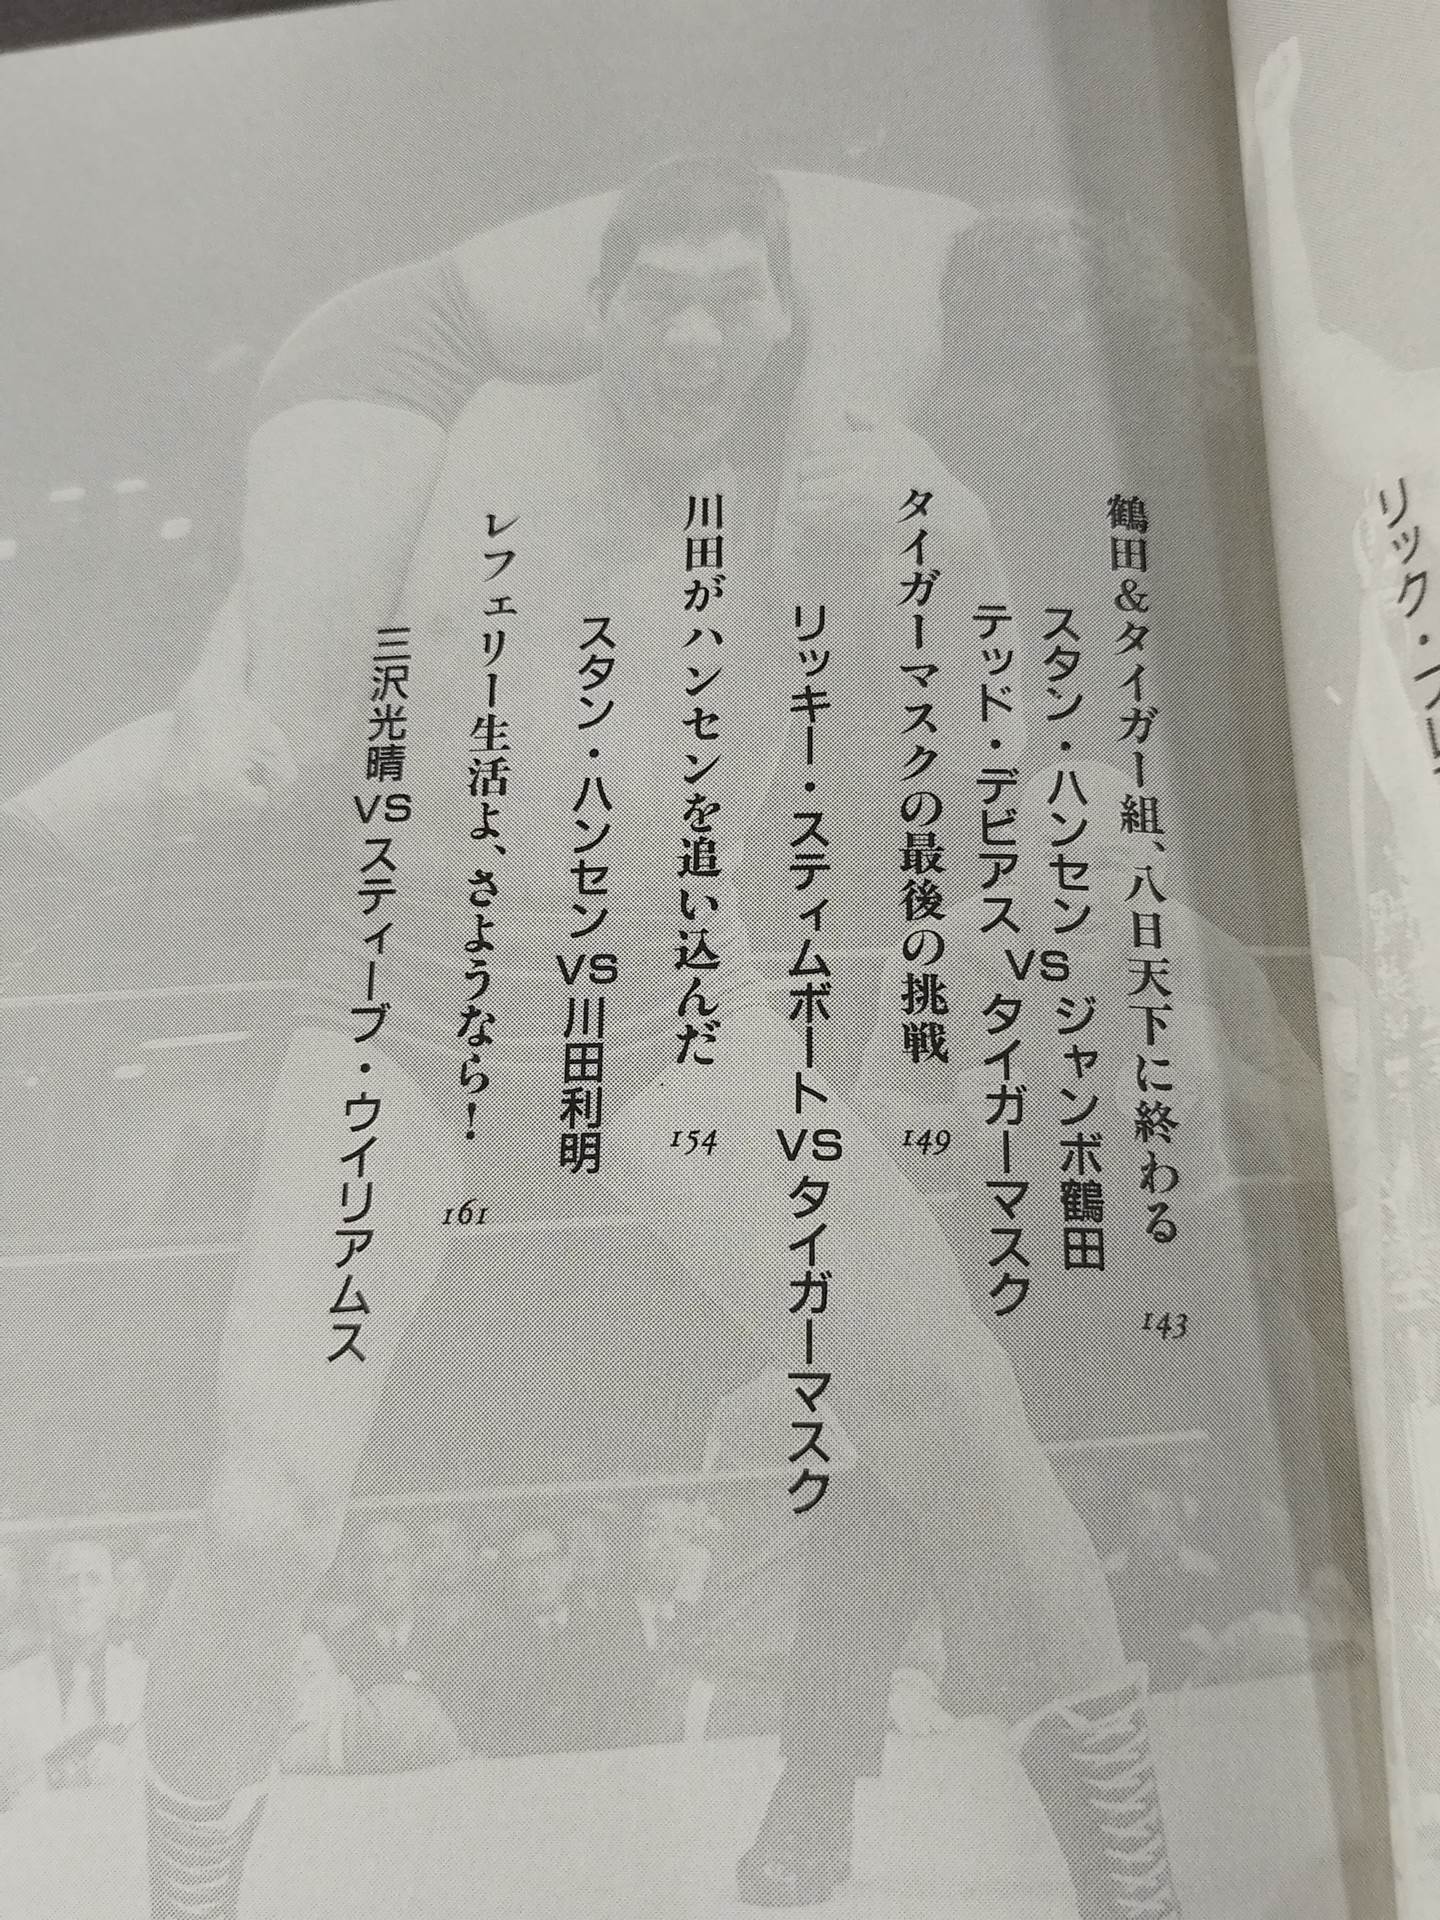 リック・フレ
鶴田＆タイガー組、八日天下に終わる 143
スタン・ハンセン
テッド・デビアス
VS
ジャンボ鶴田
タイガーマスク
タイガーマスクの最後の挑戦 149
リッキー・スティムボートVSタイガーマスク
川田がハンセンを追い込んだ 154
スタン・ハンセンVS川田利明
レフェリー生活よ、さようなら！ 161
三沢光晴VSスティーブ・ウイリアムス